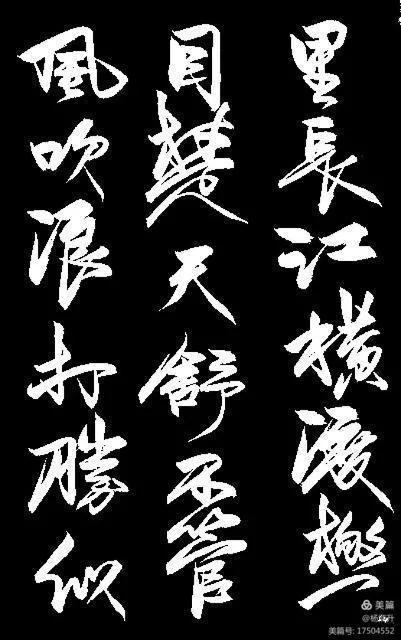 里長江橫渡極
目楚天舒不管
風吹浪打勝似
美篇
@杨彦升
美篇号: 17504552